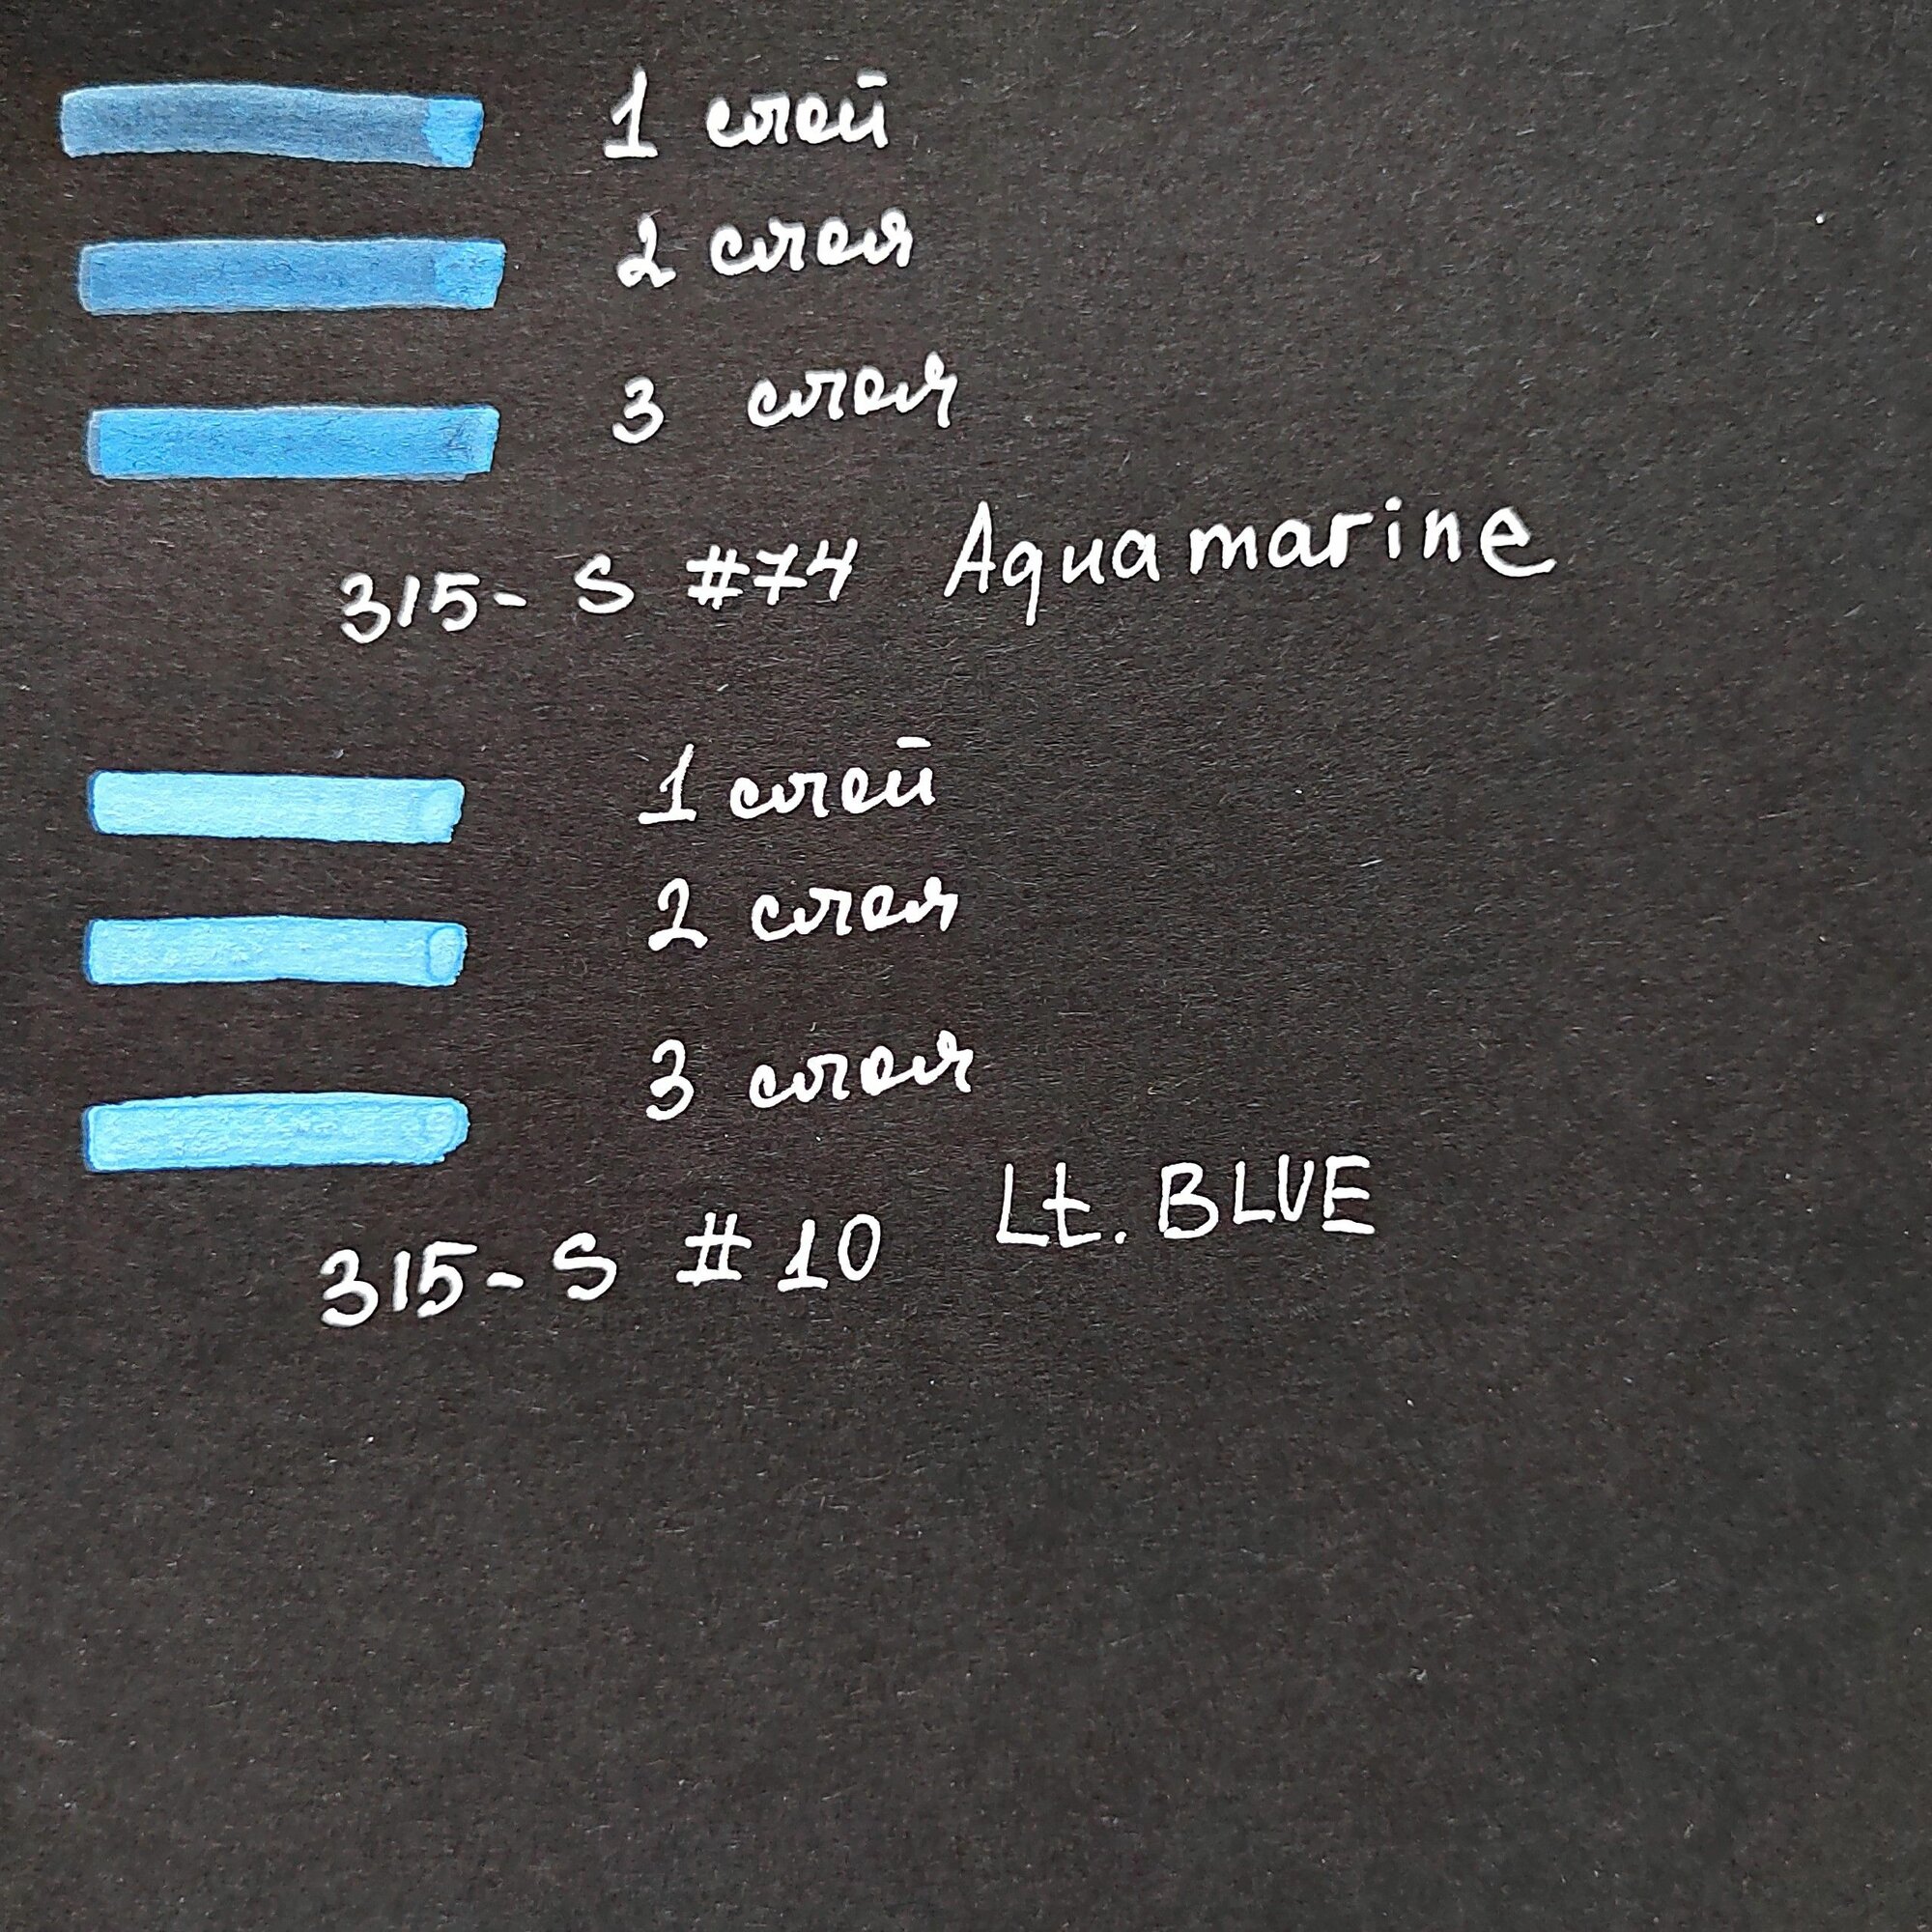 1 слой
2 слоя
3 слоя
315-S #74 Aquamarine
1 слой
2 слоя
3 слоя
315-S #10 Lt. BLUE